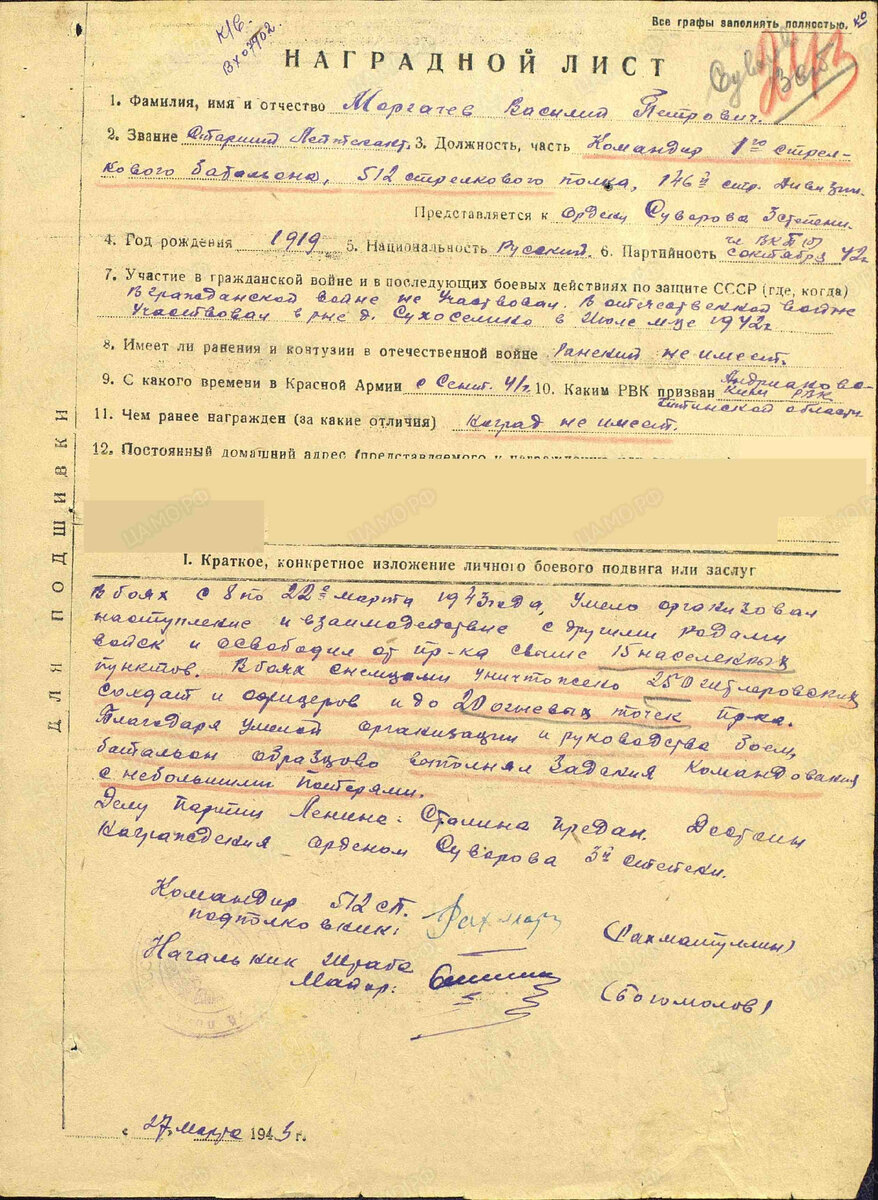 К/6.
Вх 07902.
Все графы заполнять полностью.
НАГРАДНОЙ ЛИСТ
1. Фамилия, имя и отчество Моргачев Василий Петрович.
2. Звание Старший Лейтенант. 3. Должность, часть Командир 1го стрел-
кового батальона, 512 стрелкового полка, 146й стр. Дивизии.
Представляется к ордену Суворова 3 степени.
4. Год рождения 1919 5. Национальность Русский. 6. Партийность чл. ВКП(б)
с октября 42г
7. Участие в гражданской войне и в последующих боевых действиях по защите СССР (где, когда)
В гражданской войне не участвовал. В отечественной войне
участвовал в р-не д. Сухоселико в Июле м-це 1942г
8. Имеет ли ранения и контузии в отечественной войне Ранений не имеет.
9. С какого времени в Красной Армии с Сент. 41г. 10. Каким РВК призван Андриановс-
ким РВК
Читинской области
11. Чем ранее награжден (за какие отличия) наград не имеет.
12. Постоянный домашний адрес
ДЛЯ ПОДШИВКИ
I. Краткое, конкретное изложение личного боевого подвига или заслуг
В боях с 8 по 22е марта 1943 года, умело организовал
наступление и взаимодействие с другими родами
войск и освободил от пр-ка свыше 15 населенных
пунктов. В боях с немцами уничтожено 250 гитлеровских
солдат и офицеров и до 20 огневых точек пр-ка.
Благодаря умелой организации и руководства боем,
батальон образцово выполнял задания Командования
с небольшими потерями.
Делу партии Ленина-Сталина предан. Достоин
награждения орденом Суворова 3й степени.
Командир 512 сп.
подполковник:
(Рахматуллин)
Начальник штаба
Майор:
(Богомолов)
« 27 » марта 1943 г.
ЦАМО.РФ